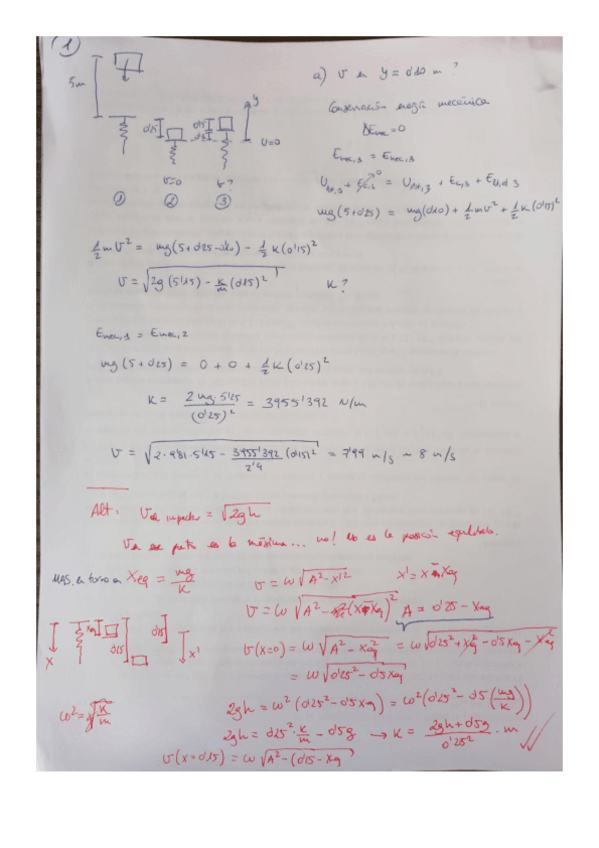 1
5m
a) v en y = 0'10 m ?
Conservación energía mecánica
ΔEmec = 0
y
0'25
0'15
v=0
v=0
v?
① ② ③
Emec,1 = Emec,3
0
mg(5+0'25) = mg(0'10) + 1/2 mv² + 1/2 K(0'15)²
1/2 mv² = mg(5+0'25-0'10) - 1/2 K(0'15)²
v = √(2g(5'15) - K/m (0'15)²)
K?
Emec,1 = Emec,2
mg(5+0'25) = 0 + 0 + 1/2 K(0'25)²
K = 2mg·5'25 / (0'25)² = 3955'392 N/m
v = √(2·9'81·5'15 - 3955'392/2'4 (0'15)²) = 7'99 m/s ~ 8 m/s
Alt: = √(2gh)
es la máxima... no! no es la posición equilibrio.
MAS en torno a Xeq = mg/K
v = ω√(A² - x'²)
x' = x - Xeq
v = ω√(A² - (x-Xeq)²)
A = 0'25 - Xeq
Xeq
0'25
0'15
x
x'
v(x=0) = ω√(A² - Xeq²) = ω√(0'25² + Xeq² - 0'5Xeq - Xeq²)
= ω√(0'25² - 0'5Xeq)
ω² = K/m
2gh = ω²(0'25² - 0'5Xeq) = ω²(0'25² - 0'5(mg/K))
2gh = 0'25² · K/m - 0'5g → K = (2gh + 0'5g)/0'25² · m
v(x=0'15) = ω√(A² - (0'15 - Xeq